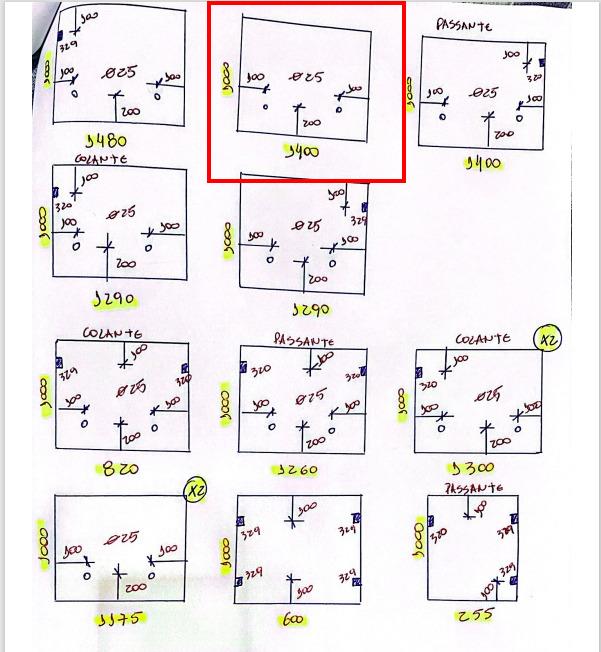 100
329
1000
100
Ø25
100
200
1480
1000
100
Ø25
100
200
1400
PASSANTE
100
320
1000
100
Ø25
100
200
1400
COLANTE
100
320
1000
100
Ø25
100
200
1290
320
329
1000
100
Ø25
100
200
1290
COLANTE
100
329
320
1000
100
Ø25
100
200
820
PASSANTE
100
320
320
1000
100
Ø25
100
200
1260
COLANTE
X2
100
320
1000
100
Ø25
100
200
1300
X2
1000
100
Ø25
100
200
1175
100
329
329
1000
329
329
100
600
PASSANTE
100
320
329
1000
329
100
255